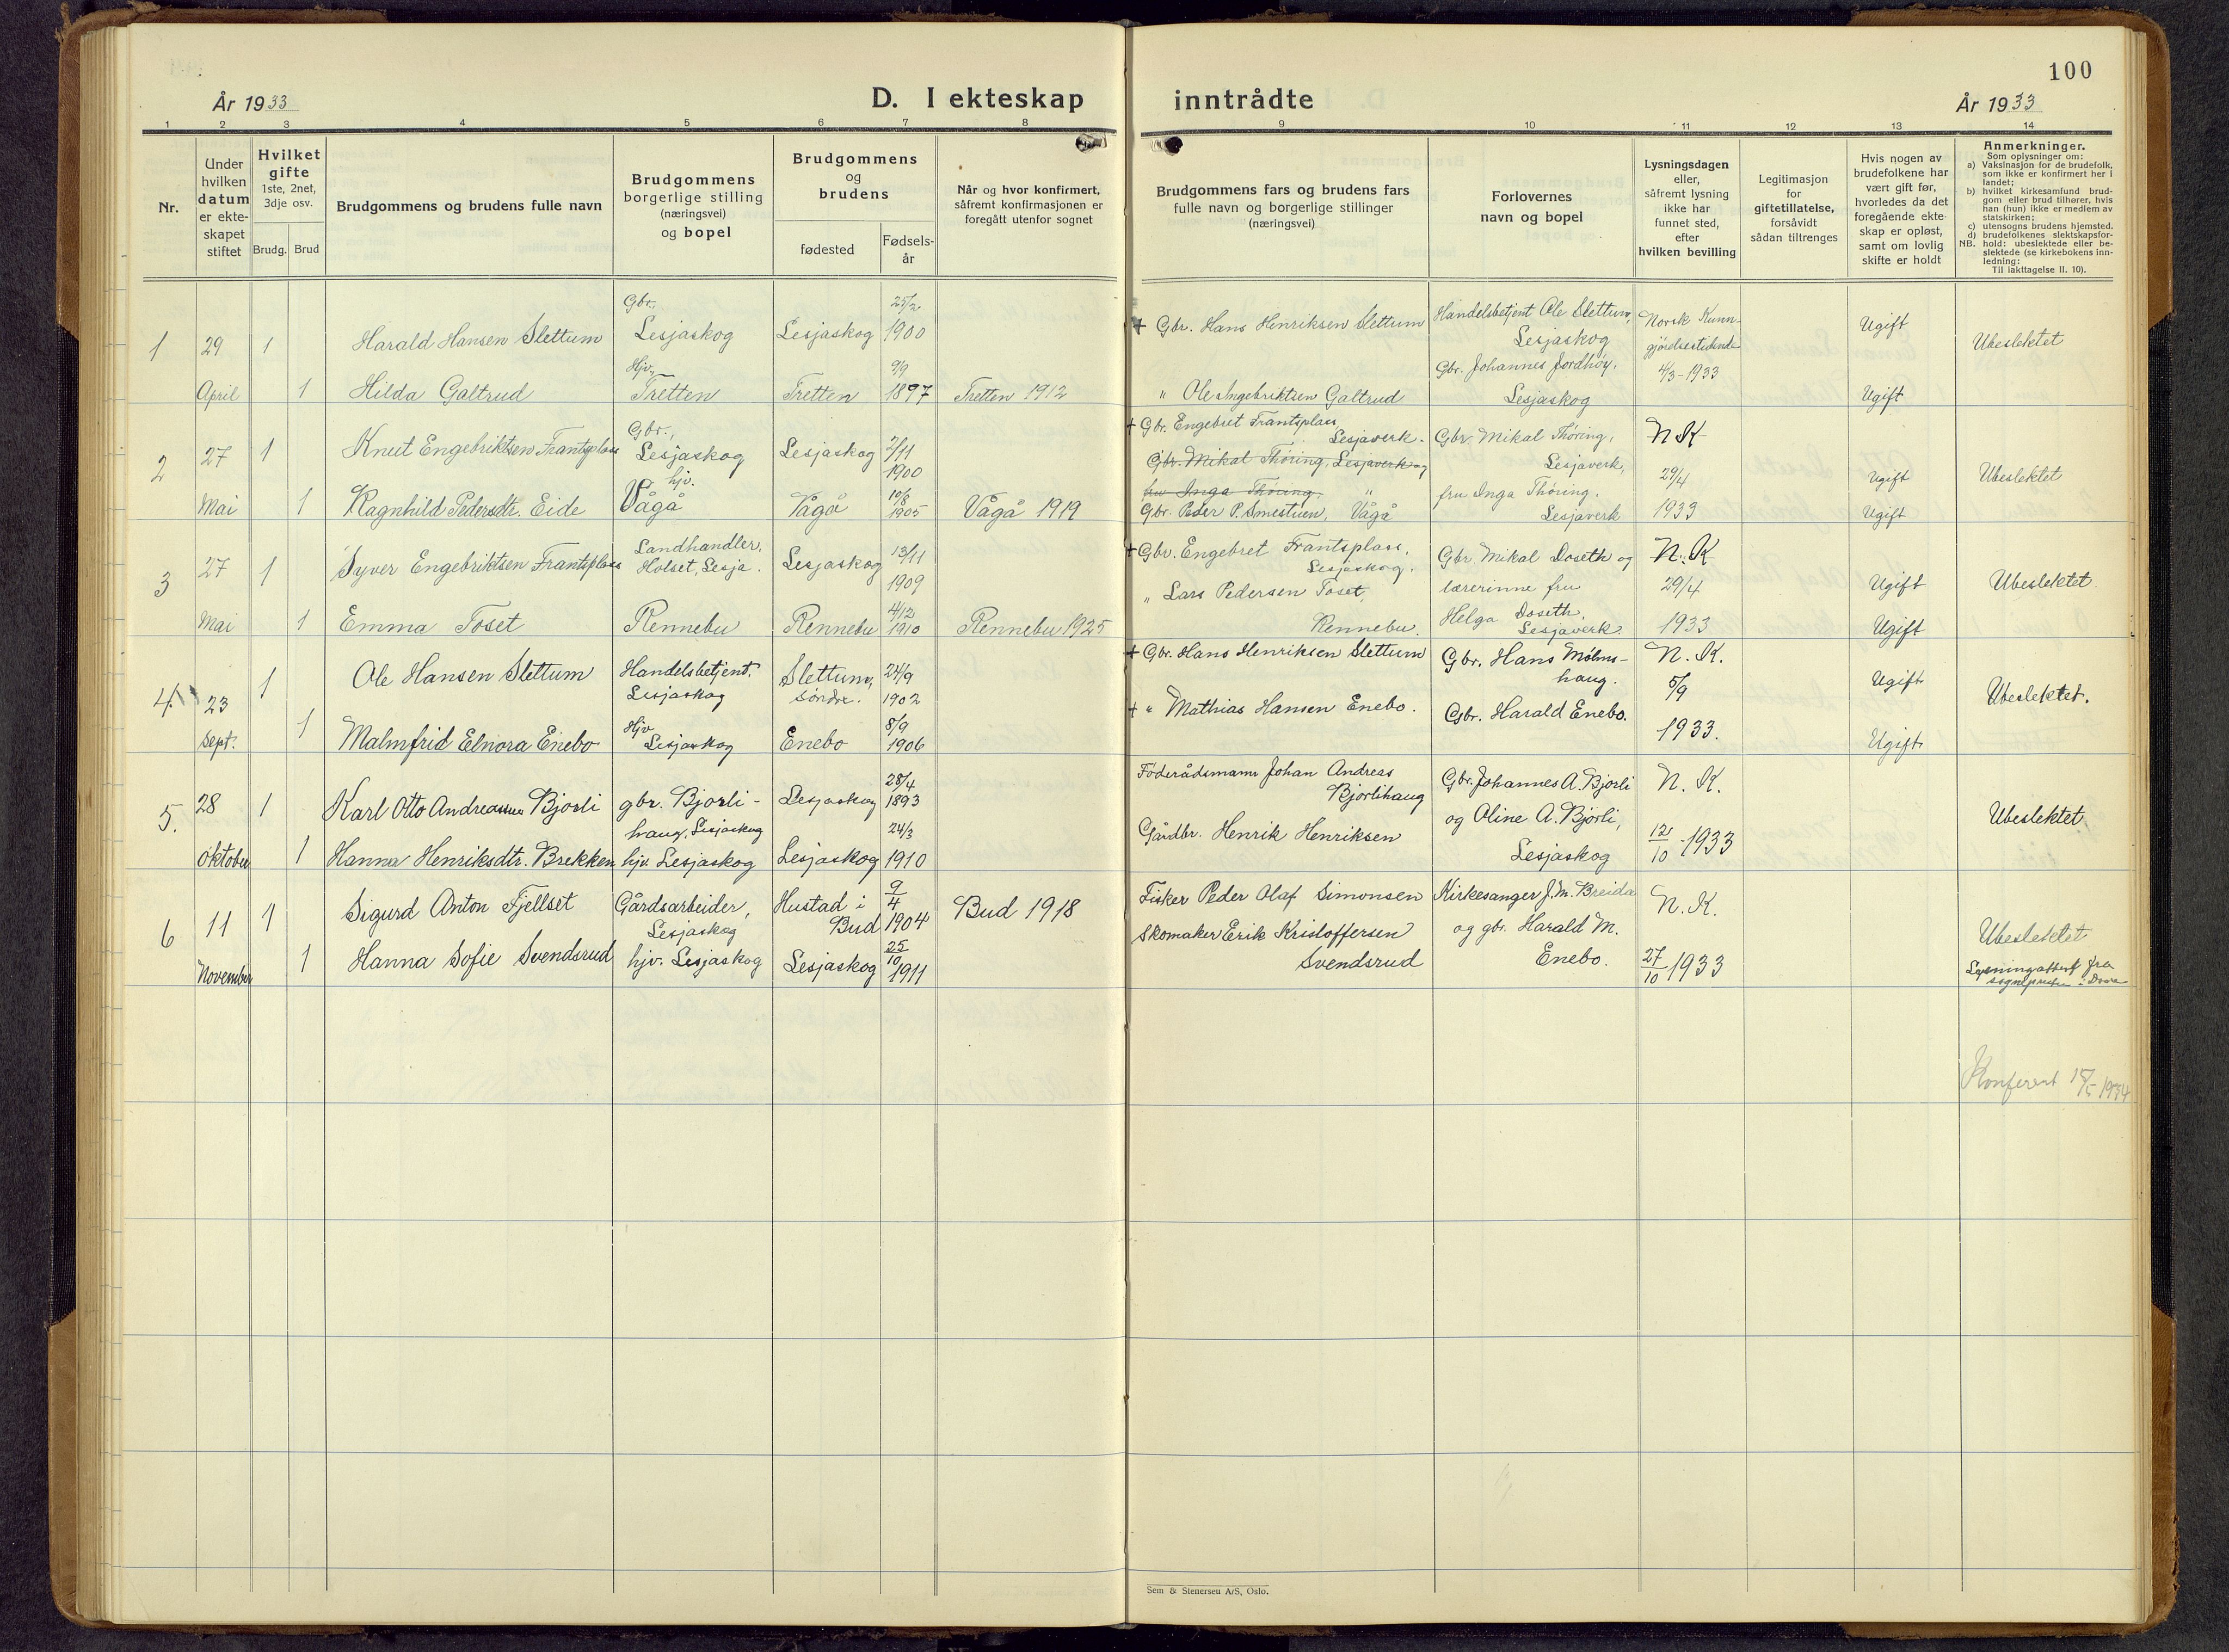 100
År 1933
D. I ekteskap inntrådte
År 1933
1 2 3 4 5 6 7 8 9 10 11 12 13 14
Nr.
Under
hvilken
datum
er ekte-
skapet
stiftet
Hvilket
gifte
1ste, 2net,
3dje osv.
Brudg. Brud
Brudgommens og brudens fulle navn
Brudgommens
borgerlige stilling
(næringsvei)
og bopel
Brudgommens
og
brudens
fødested
Fødsels-
år
Når og hvor konfirmert,
såfremt konfirmasjonen er
foregått utenfor sognet
Brudgommens fars og brudens fars
fulle navn og borgerlige stillinger
(næringsvei)
Forlovernes
navn og bopel
Lysningsdagen
eller,
såfremt lysning
ikke har
funnet sted,
efter
hvilken bevilling
Legitimasjon
for
giftetillatelse,
forsåvidt
sådan tiltrenges
Hvis nogen av
brudefolkene har
vært gift før,
hvorledes da det
foregående ekte-
skap er opløst,
samt om lovlig
skifte er holdt
Anmerkninger.
Som oplysninger om:
a) Vaksinasjon for de brudefolk,
som ikke er konfirmert her i
landet;
b) hvilket kirkesamfund brud-
gom eller brud tilhører, hvis
han (hun) ikke er medlem av
statskirken;
c) utensogns brudens hjemsted.
d) brudefolkenes slektskapsfor-
NB. hold: ubeslektede eller be-
slektede (se kirkebokens inn-
ledning:
Til iakttagelse II. 10).
1
29
April
1
Harald Hansen Slettum
Gbr.,
Lesjaskog
Lesjaskog
25/2.
1900
1
Hilda Galtrud
Hjv.,
Tretten
Tretten
9/9
1897
Tretten 1912
+ Gbr. Hans Henriksen Slettum
" Ole Ingebriktsen Galtrud
Handelsbetjent Ole Slettum,
Lesjaskog
Gbr. Johannes Jordhøy,
Lesjaskog
Norsk Kunn-
gjørelsestidende
4/3-1933
Ugift
Ugift
Ubeslektet
2
27
Mai
1
Knut Engebriktsen Frantsplass
Gbr.,
Lesjaskog
Lesjaskog
7/11
1900
1
Ragnhild Pedersdtr. Eide
hjv.
Vågå
Vågå
10/6
1905
Vågå 1919
+ Gbr. Engebret Frantsplass,
Lesjaverk.
Gbr. Mikal Thøring, Lesjaverk og
fru Inga Thøring. "
Gbr. Peder P. Smestuen, Vågå
Gbr. Mikal Thøring,
Lesjaverk,
fru Inga Thøring.
Lesjaverk
N K
29/4
1933
Ugift
Ugift
Ubeslektet
3
27
Mai
1
Syver Engebriktsen Frantsplass
Landhandler,
Holset, Lesja.
Lesjaskog
13/11
1909
1
Emma Toset
Rennebu
Rennebu
4/12
1910
Rennebu 1925
+ Gbr. Engebret Frantsplass,
Lesjaskog.
" Lars Pedersen Toset,
Rennebu.
Gbr Mikal Doseth og
lærerinne fru
Helga Doseth,
Lesjaverk.
N. K
29/4
1933
Ugift
Ugift
Ubeslektet.
4.
23
Sept.
1
Ole Hansen Slettum
Handelsbetjent.
Lesjaskog
Slettum,
søndre.
24/9
1902
1
Malmfrid Elnora Enebo
Hjv
Lesjaskog
Enebo
8/9
1906
+ Gbr. Hans Henriksen Slettum
+ " Mathias Hansen Enebo.
Gbr. Hans Mølms-
haug.
Gbr. Harald Enebo.
N. K.
5/9
1933.
Ugift
Ugift
Ubeslektet.
5.
28
oktober
1
Karl Otto Bjorli
gbr. Bjorli-
haug, Lesjaskog
Lesjaskog
28/4
1893
1
Hanna Henriksdtr. Brekken
hjv. Lesjaskog
Lesjaskog
24/3
1910
Føderådsmann Johan Andreas
Bjorlihaug
Gårdbr. Henrik Henriksen
Gbr. Johannes A. Bjorli
og Oline A. Bjørli,
Lesjaskog
N. K.
12/10 1933
Ubeslektet
6
11
November
1
Sigurd Anton Fjellset
Gårdsarbeider,
Lesjaskog
Hustad i
Bud
9/4
1904
Bud 1918
1
Hanna Sofie Svendsrud
hjv. Lesjaskog
Lesjaskog
25/10
1911
Fisker Peder Olaf Simonsen
Skomaker Erik Kristoffersen
Svendsrud
Kirkesanger J. M. Breida
og gbr. Harald M.
Enebo.
N. K.
27/10 1933
Ubeslektet
Lysningattest fra
sognepresten i Dovre
Konferert 1934
Sem & Stenersen A/S, Oslo.